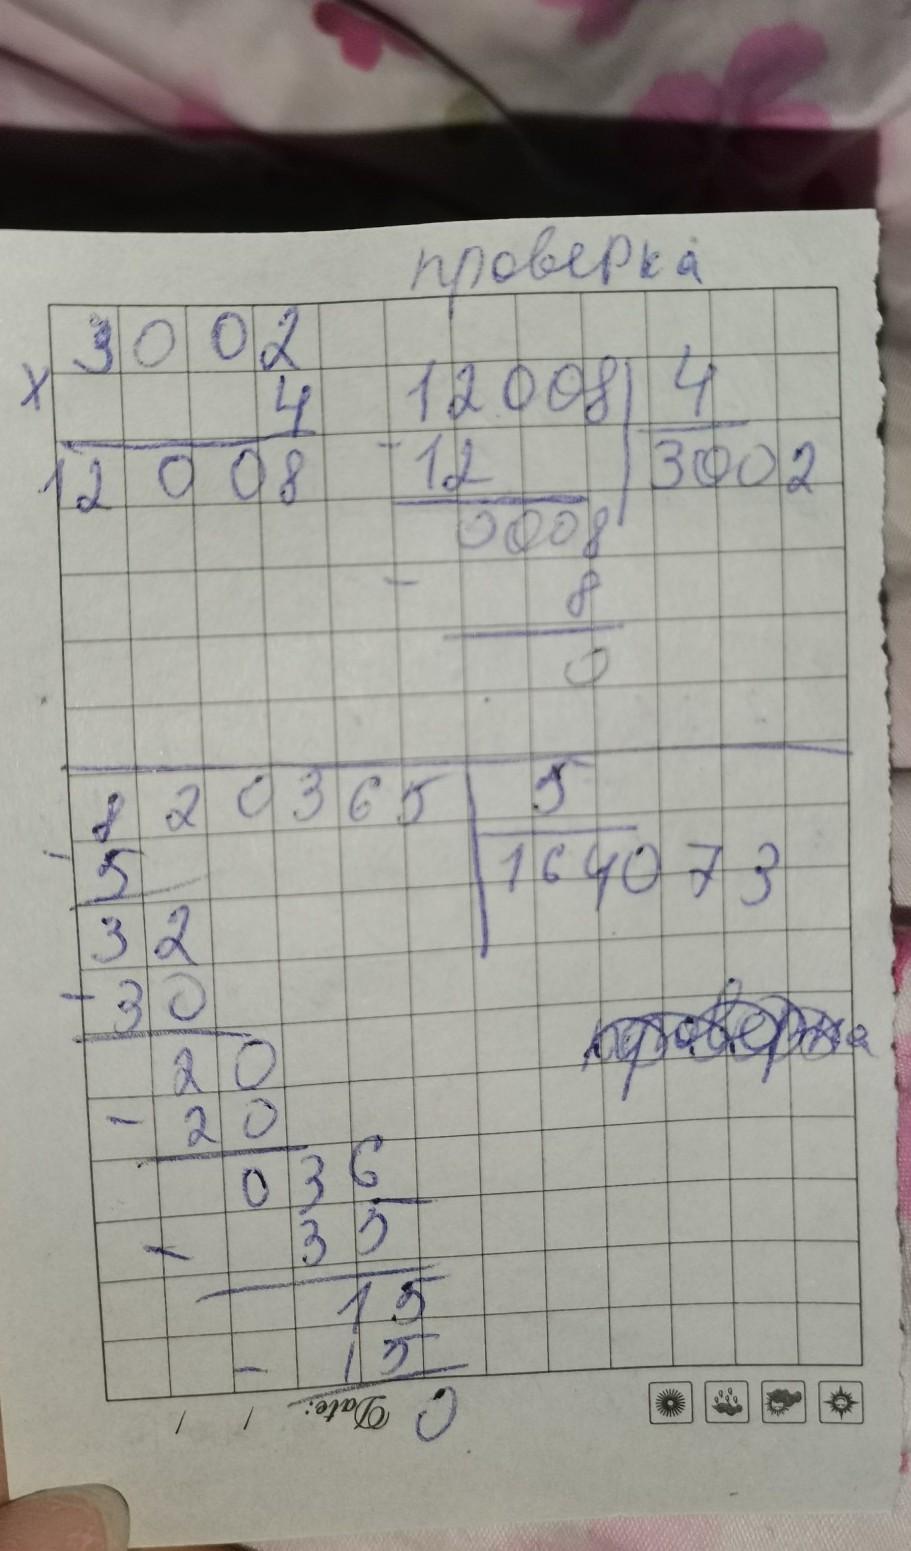 проверка
3002
x 4
12008
12008 4
- 12 3002
0008
- 8
0
820365 5
- 5 164073
32
- 30
20
- 20
036
- 35
15
- 15
0
Date: / /